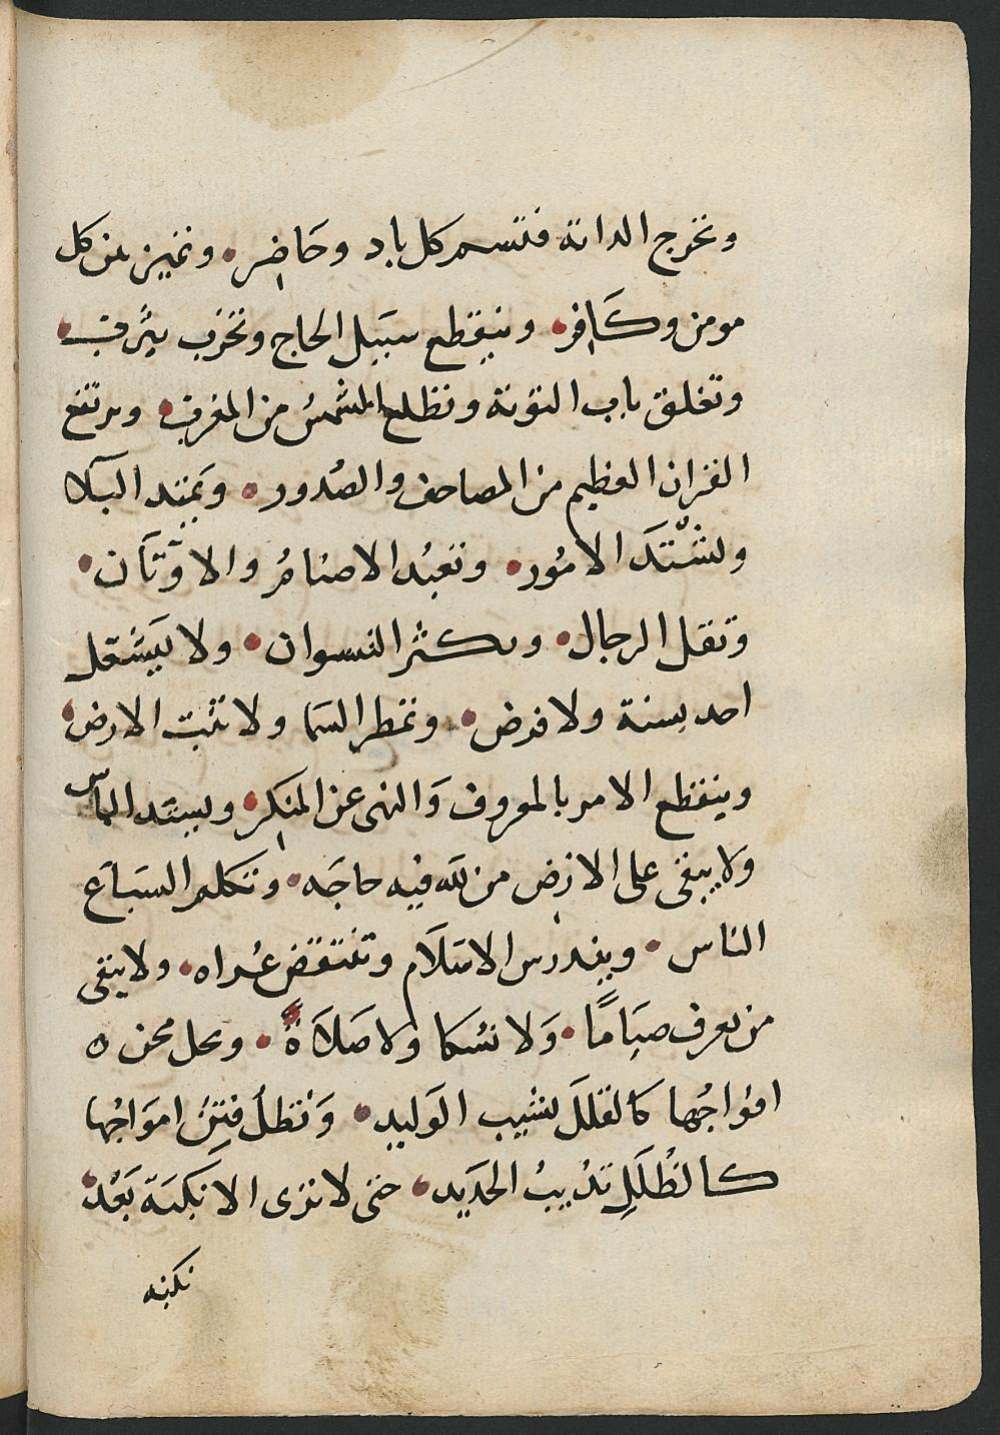 وتخرج الدابة فتسم كل باد وحاضر • وتميز بين كل
مومن وكافر • وينقطع سبيل الحاج وتخرب يثرب •
وتغلق باب التوبة وتطلع الشمس من المغرب • ويرتفع
القران العظيم من المصاحف والصُدور • ويمتد البلا
وتشتدَ الامُور • وتعبُد الاصنامُ والاوثان •
وتقل الرجال • ويكثر النسوان • ولا يشتغل
احد بسنة ولا فرض • وتمطر السما ولا تنبت الارض •
وينقطع الامر بالمعروف وَالنهى عن المنكر • ويشتد الباس
ولا يبقى على الارض من لله فيه حاجَه • وتكلم السبَاع
الناس • ويندرس الاسلَام وتنتقض عُراه • ولا يبقى
من يعرف صيَامًا • وَلا نسُكا ولا صَلاَةً • ويحل محن
امواجُها كالقلل تشيب الوَليد • وَتظلُ فتنُ امواجُها
كالظُلَلِ تذيبُ الحَديد • حتى لا ترى الا نكبَة بَعْد
نكبه